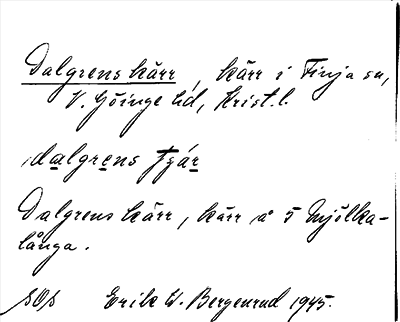 Dalgrenskärr, kärr i Finja sn,
V. Göinge hd, Krist. l.
dalgrens
Dalgrens kärr, kärr å 5 Mjölka-
långa.
Erik W. Bergenrud 1945.